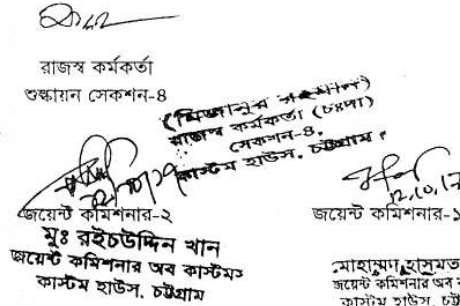 রাজস্ব কর্মকর্তা
শুল্কায়ন সেকশন-8
(মিজানুর রহমান)
রাজস্ব কর্মকর্তা (চঃদাঃ)
সেকশন-8,
কাস্টম হাউস, চট্টগ্রাম।
জয়েন্ট কমিশনার-২
মুঃ রইচউদ্দিন খান
জয়েন্ট কমিশনার অব কাস্টমস
কাস্টম হাউস, চট্টগ্রাম
12.10.17
জয়েন্ট কমিশনার-১
মোহাম্মদ হাসমত
জয়েন্ট কমিশনার অব
কাস্টম হাউস, চট্ট